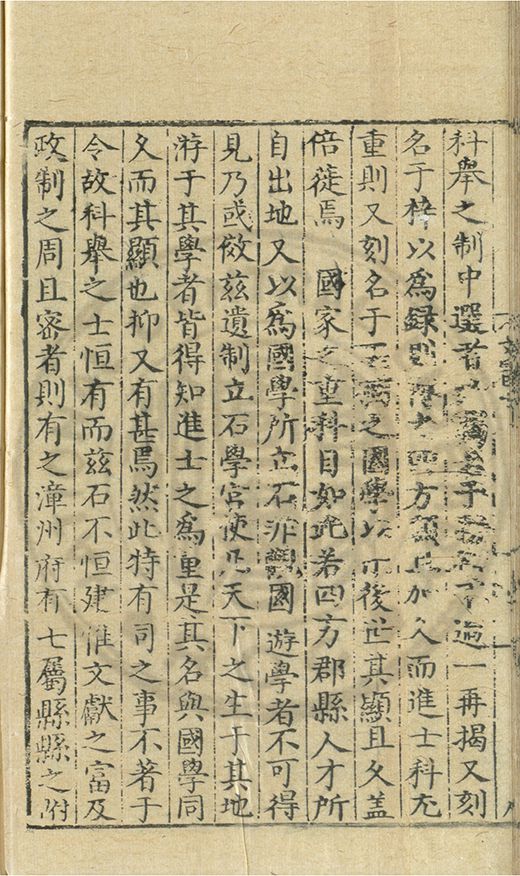 科舉之制中選者過一再揭又刻
名于梓以爲録則四方加人而進士科尤
重則又刻名于之國學以後世其顯且久蓋
倍蓰焉　國家之重科目如此若四方郡縣人才所
自出地又以爲國學所立石非國遊學者不可得
見乃或倣兹遺制立石學宮使凡天下之生于其地
游于其學者皆得知進士之爲重是其名與國學同
久而其顯也抑又有甚焉然此特有司之事不著于
令故科舉之士恒有而兹石不恒建惟文獻之富及
政制之周且密者則有之漳州府有七屬縣縣之附